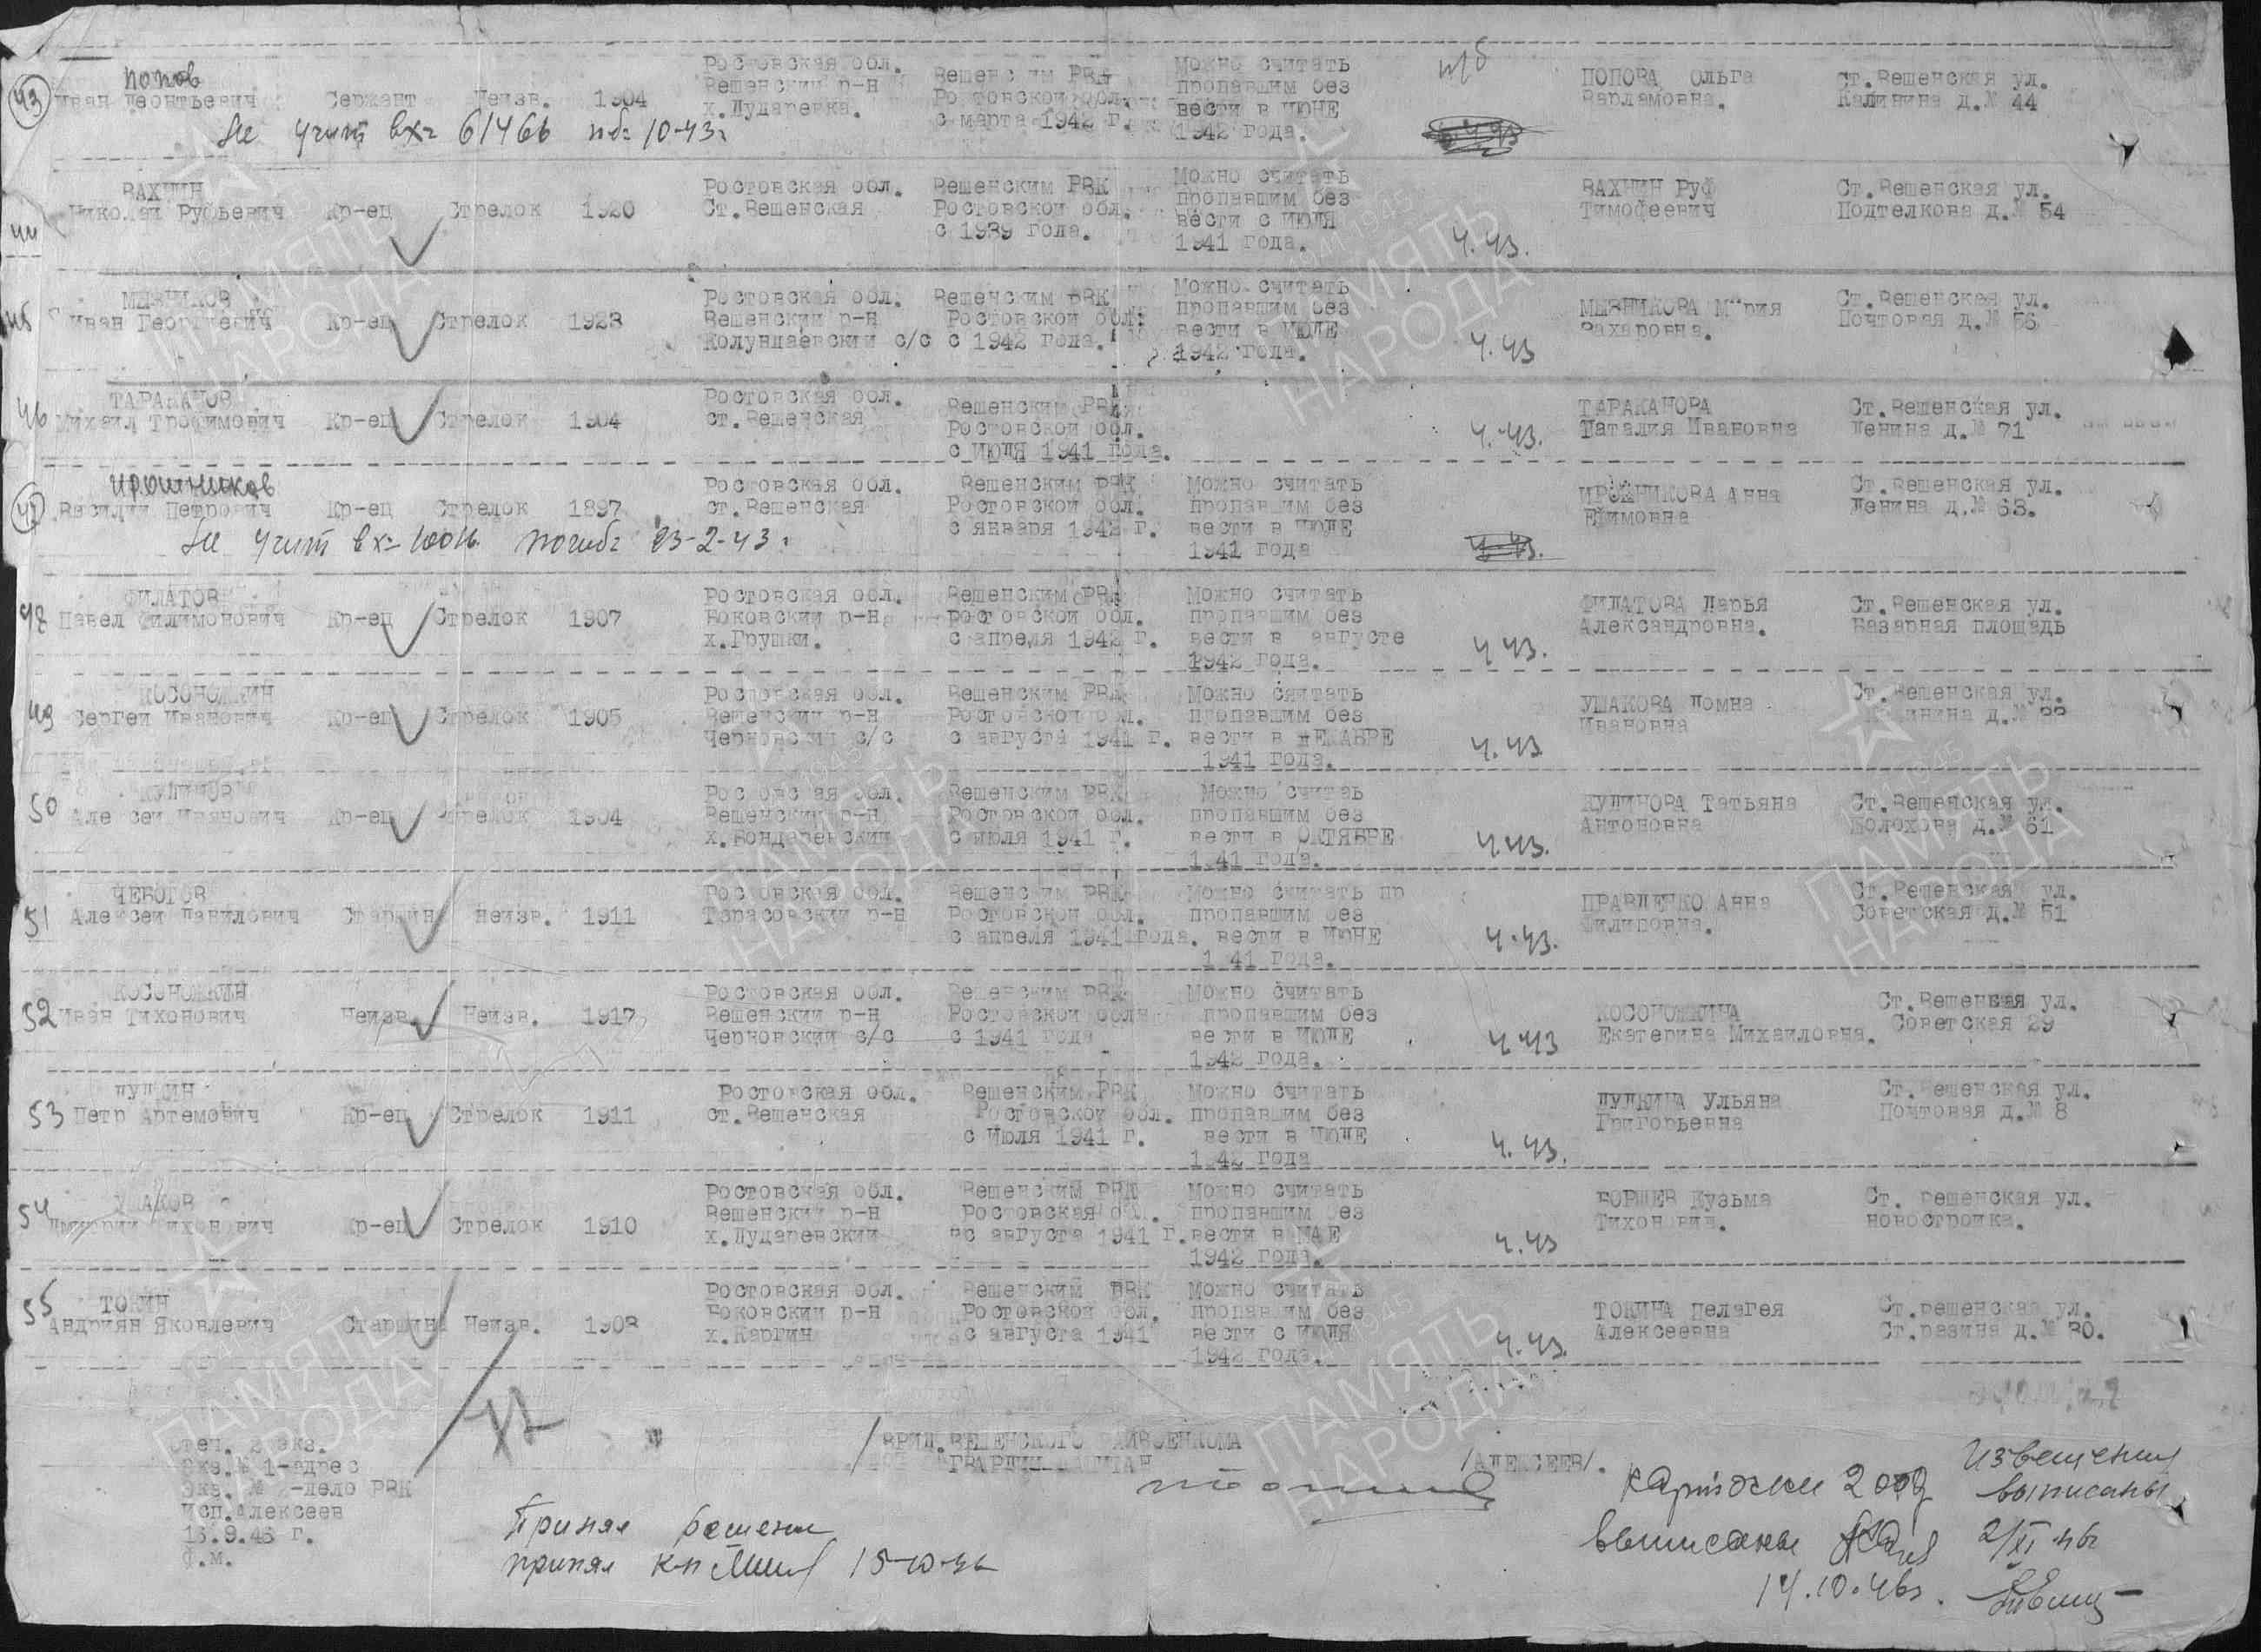 43
Попов
Иван Леонтьевич Сержант Неизв. 1904
Ростовская обл.
Вешенский р-н
х.Дударевка.
Вешенским РВК
Ростовской обл.
с марта 1942 г.
Можно считать
пропавшим без
вести в ИЮНЕ
1942 года.
ПОПОВА Ольга
Варламовна.
Ст.Вешенская ул.
Калинина д.№ 44
Не учит вх= 61466 10-43г
44
ВАХНИН
Николай Руфьевич Кр-ец Стрелок 1920
Ростовская обл.
Ст.Вешенская
Вешенским РВК
Ростовской обл.
с 1939 года.
Можно считать
пропавшим без
вести с ИЮЛЯ
1941 года.
4.43.
ВАХНИН Руф
Тимофеевич
Ст.Вешенская ул.
Подтелкова д.№ 54
45
Иван Георгиевич Кр-ец Стрелок 1923
Ростовская обл.
Вешенский р-н
Колундаевский с/с
Вешенским РВК
Ростовской обл.
с 1942 года.
Можно считать
пропавшим без
вести в ИЮЛЕ
1942 года.
4.43
Захаровна.
Ст.Вешенская ул.
Почтовая д.№ 56
46
ТАРАКАНОВ
Михаил Трофимович Кр-ец Стрелок 1904
Ростовская обл.
ст.Вешенская
Вешенским РВК
Ростовской обл.
с ИЮЛЯ 1941 года.
4.43.
ТАРАКАНОВА
Наталия Ивановна
Ст.Вешенская ул.
Ленина д.№ 71
47
Ирошников
Василий Петрович Кр-ец Стрелок 1897
Ростовская обл.
ст.Вешенская
Вешенским РВК
Ростовской обл.
с января 1942 г.
Можно считать
пропавшим без
вести в ИЮЛЕ
1941 года
4.43.
ИРОШНИКОВА Анна
Ефимовна
Ст.Вешенская ул.
Ленина д.№ 63.
Не учит вх= погиб= 23-2-43г
48
ФИЛАТОВ
Павел Филимонович Кр-ец Стрелок 1907
Ростовская обл.
Боковский р-н
х.Грушки.
Вешенским РВК
Ростовской обл.
с апреля 1942 г.
Можно считать
пропавшим без
вести в августе
1942 года.
4.43.
ФИЛАТОВА Дарья
Александровна.
Ст.Вешенская ул.
Базарная площадь
49
КОСОНОЖКИН
Сергей Иванович Кр-ец Стрелок 1905
Ростовская обл.
Вешенский р-н
Черновский с/с
Вешенским РВК
Ростовской обл.
с августа 1941 г.
Можно считать
пропавшим без
вести в ДЕКАБРЕ
1941 года.
4.43
УШАКОВА Домна
Ивановна
Ст.Вешенская ул.
50
Алексей Иванович Кр-ец Стрелок 1904
Ростовская обл.
Вешенский р-н
х.Бондаревский
Вешенским РВК
Ростовской обл.
с июля 1941 г.
Можно считаь
пропавшим без
вести в ОКТЯБРЕ
1941 года.
4.43.
Татьяна
Антоновна
Ст.Вешенская ул.
Шолохова д.№ 61
51
ЧЕБОТОВ
Алексей Данилович Старшина Неизв. 1911
Ростовская обл.
Тарасовский р-н
Вешенским РВК
Ростовской обл.
с апреля 1941 года.
Можно считать пр
пропавшим без
вести в ИЮНЕ
1941 года.
4.43.
ПРАВДЕНКО Анна
Филиповна.
Ст.Вешенская ул.
Советская д.№ 51
52
КОСОНОЖКИН
Иван Тихонович Неизв. Неизв. 1917
Ростовская обл.
Вешенский р-н
Черновский с/с
Вешенским РВК
Ростовской обл.
с 1941 года
Можно считать
пропавшим без
вести в ИЮЛЕ
1942 года.
4.43
КОСОНОЖКИНА
Екатерина Михайловна.
Ст.Вешенская ул.
Советская 29
53
Петр Артемович Кр-ец Стрелок 1911
Ростовская обл.
ст.Вешенская
Вешенским РВК
Ростовской обл.
с Июля 1941 г.
Можно считать
пропавшим без
вести в ИЮЛЕ
1942 года
4.43.
Ульяна
Григорьевна
Ст.Вешенская ул.
Почтовая д.№ 8
54
УШАКОВ
Дмитрий Тихонович Кр-ец Стрелок 1910
Ростовская обл.
Вешенский р-н
х.Дударевский
Вешенский РВК
Ростовская обл.
с августа 1941 г.
Можно считать
пропавшим без
вести в МАЕ
1942 года.
4.43
Кузьма
Ст. Вешенская ул.
новостройка.
55
ТОКИН
Андриян Яковлевич Старшина Неизв. 1908
Ростовская обл.
Боковский р-н
х.Каргин
Вешенский РВК
Ростовской обл.
с августа 1941
Можно считать
пропавшим без
вести с ИЮЛЯ
1942 года.
4.43.
ТОКИНА Пелагея
Алексеевна
Ст.Вешенская ул.
Ст.разина д.№ 30.
Отеч. 2 экз.
Экз.№ 1-адрес
Экз. № 2-дело РВК
Исп.Алексеев
ф.м.
ВРИД.ВЕШЕНСКОГО РАЙВОЕНКОМА
ГВАРДИИ КАПИТАН
/АЛЕКСЕЕВ/.
принял к-н 15-10-46
Карточки
выписаны
14.10.46г.
Извещения
выписаны
2/XI 46
ПАМЯТЬ
НАРОДА
1941 1945